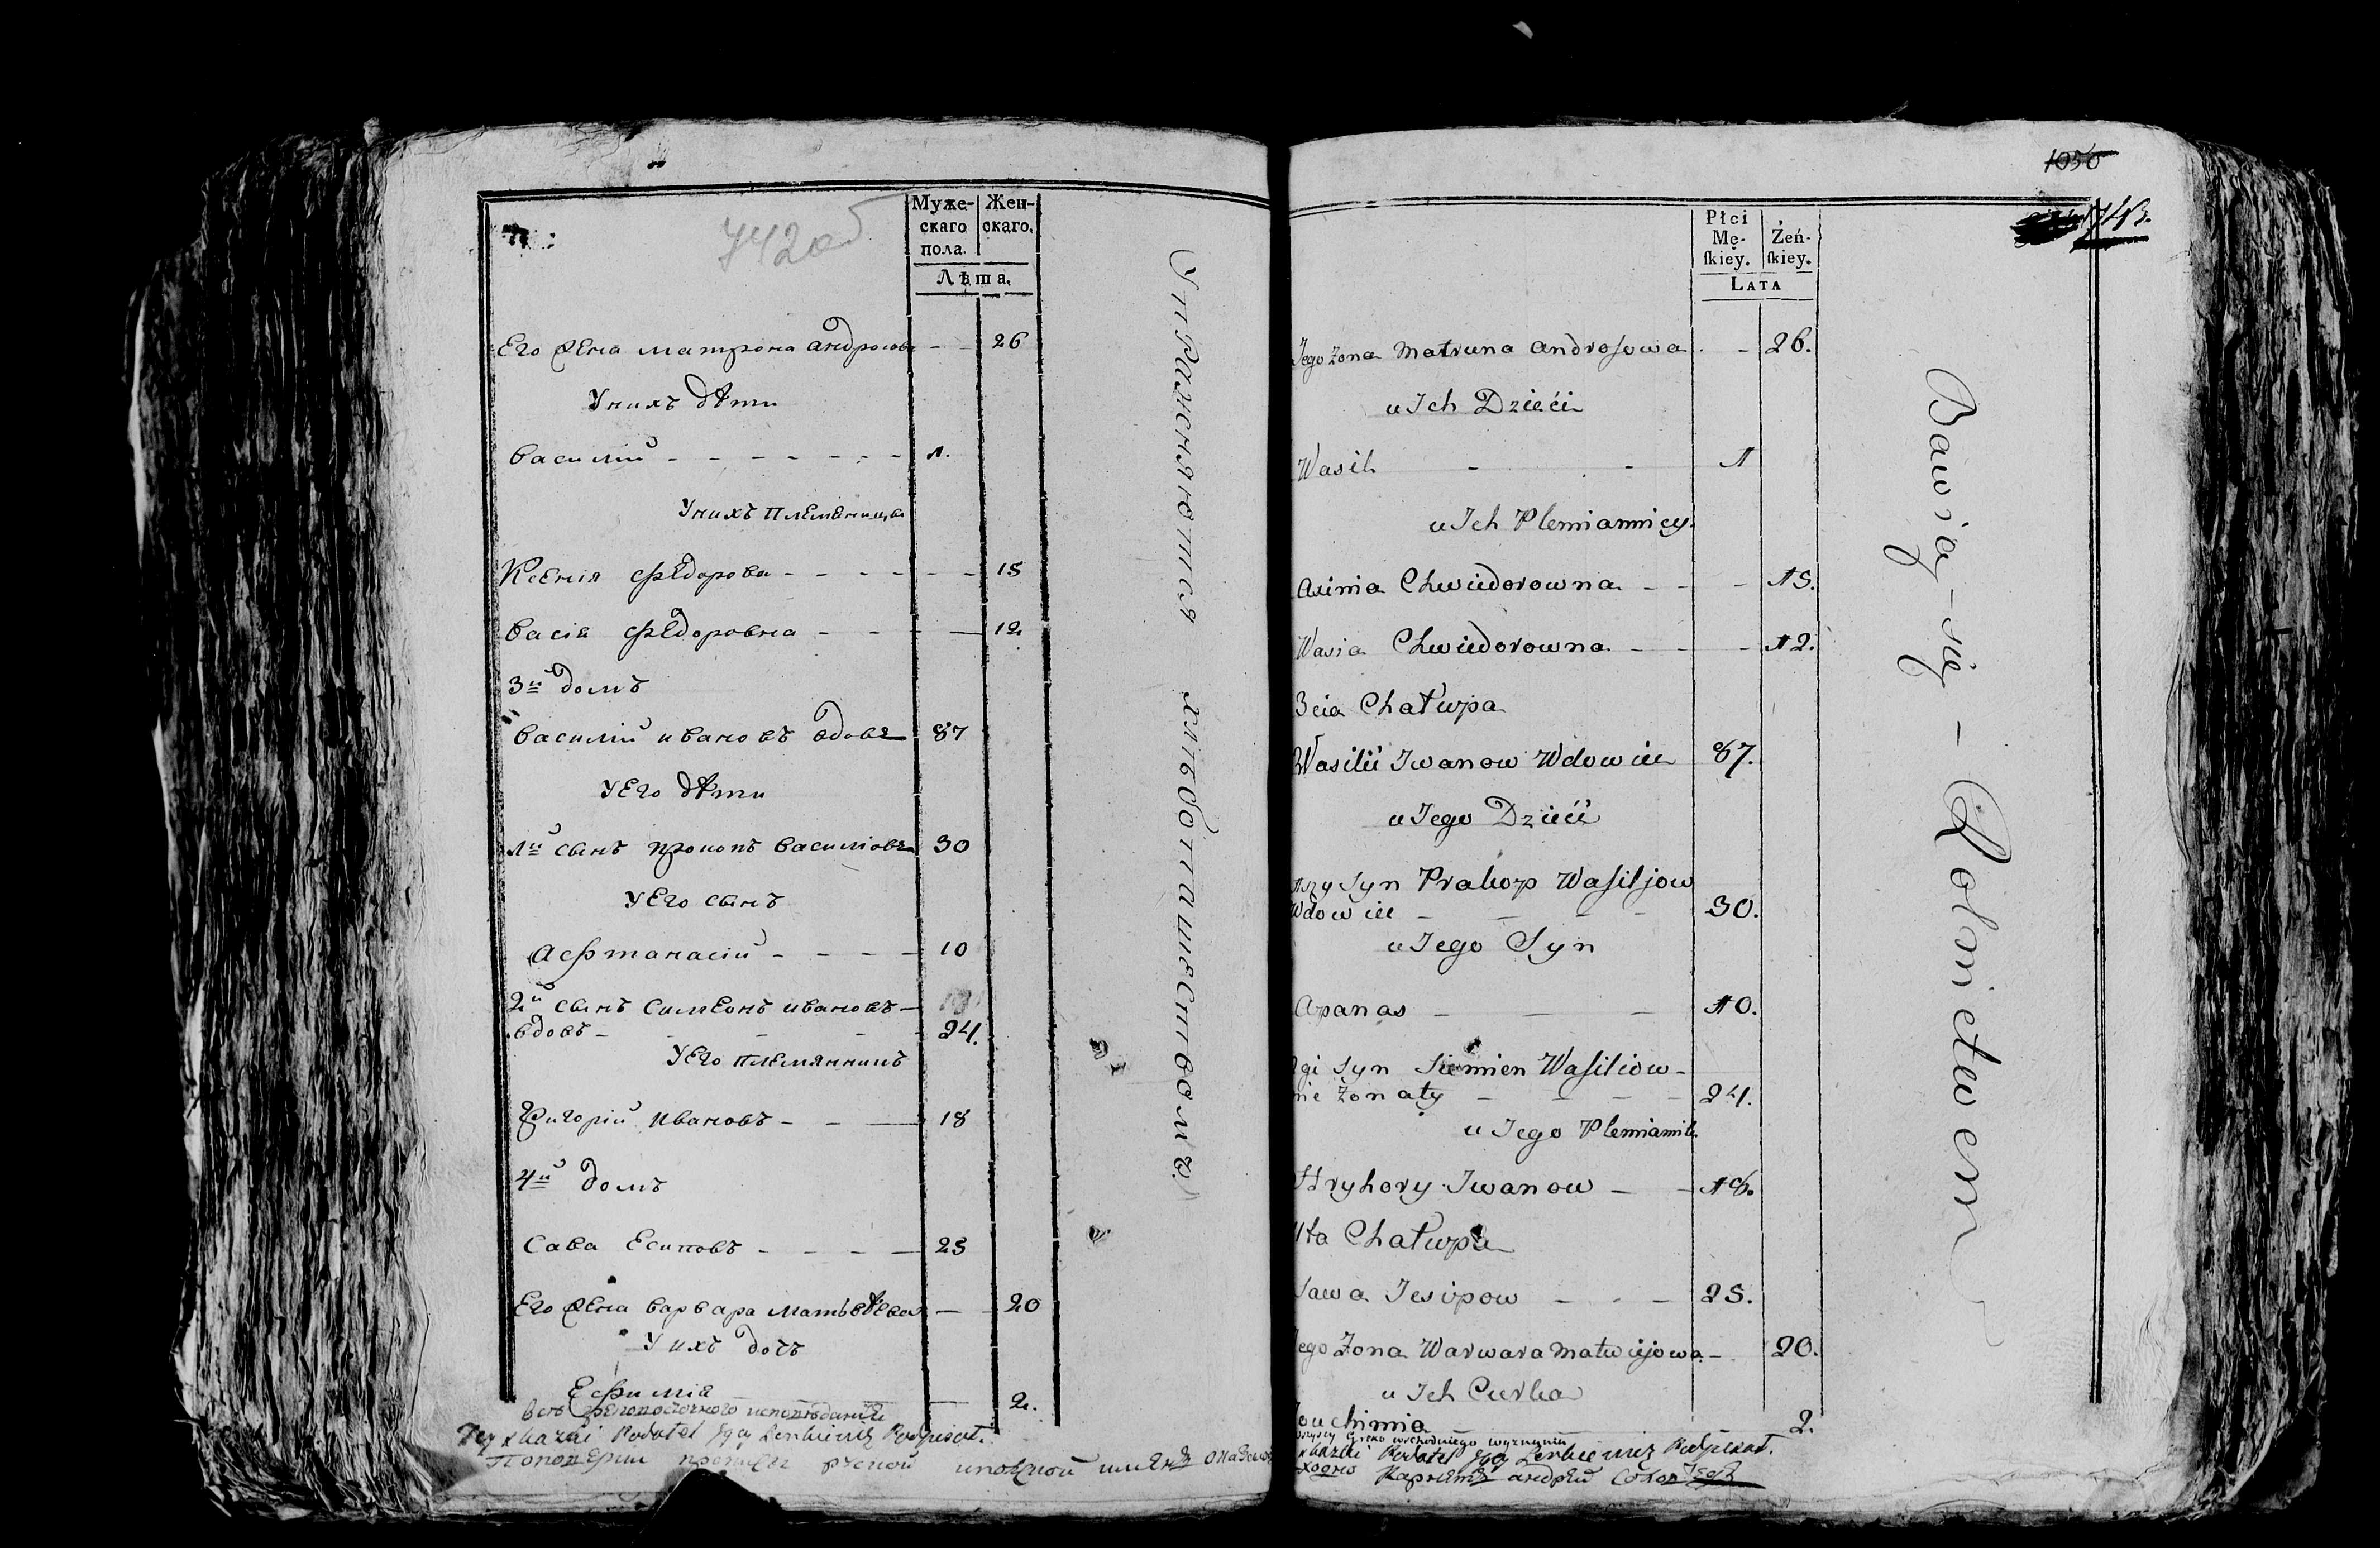 742об
Муже-
скаго
пола.
Жен-
скаго.
Лѣта.
Его жена матрона андросова - - 26
Унихъ дѣти
Василій - - - - - - - 1.
Унихъ племяницы
Ксенія федорова - - - - - - 15
Васія федоровна - - - - 12
3й домъ
Василій ивановъ вдовъ 87
УЕго дѣти
1й сынъ прокопъ василіовъ 30
УЕго сынъ
Афтанасій - - - - 10
2й сынъ симеонъ ивановъ -
вдовъ - - - - - 24.
УЕго племянникъ
Григорій ивановъ - - - 18
4й домъ
Сава Есиповъ - - - - 25
Его жена варвара матьвѣева - - 20
У ихъ дочъ
Ефимія - 2.
Всѣ грекопосточного исповѣданія
Tey skazki Podatel Podpisał.
Упражняются хлѣбопашествомъ
1050
743.
Płci
Mę-
skiey.
Żeń-
skiey.
LATA
Jego żona Matruna androsowa - - 26.
u Ich Dzieći
Wasil - - 1
u Ich Plemiannicy.
axinia Chwiedorowna - - - 15.
Wasia Chwiedorowna - - - 12.
3cia Chałupa
Wasilii Iwanow Wdowiec 87.
u Iego Dzieći
1szy Syn Prakop Wasiljow
Wdowiec - - - - 30.
u Iego Syn
Apanas - - - 10.
2gi Syn Siemien Wasiliow -
nie żonaty - - - - 24.
u Iego Plemiannik
Hryhory Iwanow - - 18.
4ta Chałupa
Sawa Iesipow - - - 25.
Jego Żona Warwara Matwiejowa - 20.
u Ich Curka
Jouchimia 2.
Wszyscy Greko wschodniego wyznania
skazki Podatel Podpisał.
андрей
Bawią-się - Rolnictwem